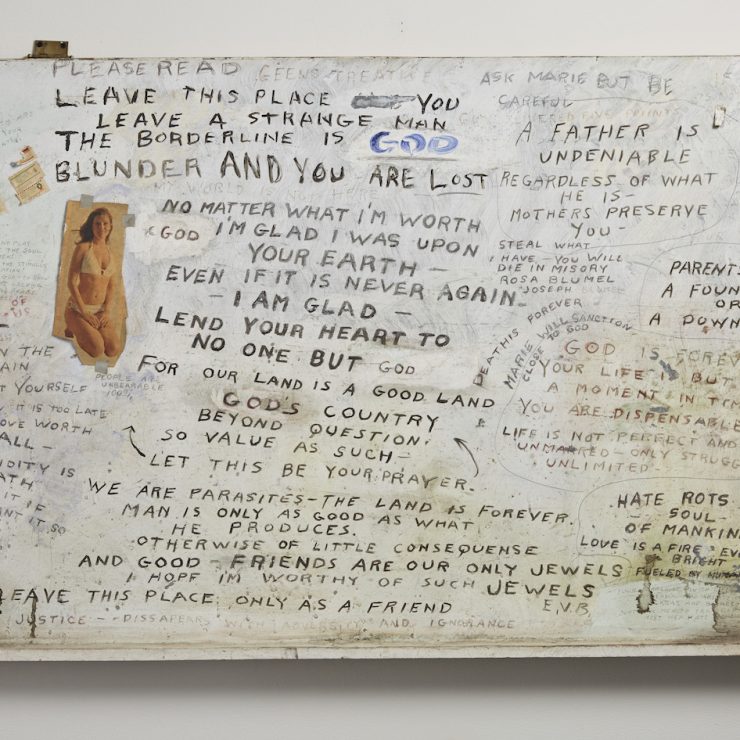 PLEASE READ
LEAVE THIS PLACE YOU
LEAVE A STRANGE MAN
THE BORDERLINE IS GOD
BLUNDER AND YOU ARE LOST
NO MATTER WHAT I'M WORTH
GOD I'M GLAD I WAS UPON
YOUR EARTH -
EVEN IF IT IS NEVER AGAIN -
- I AM GLAD -
LEND YOUR HEART TO
NO ONE BUT GOD
FOR OUR LAND IS A GOOD LAND
GOD'S COUNTRY
BEYOND QUESTION.
SO VALUE AS SUCH -
LET THIS BE YOUR PRAYER.
WE ARE PARASITES - THE LAND IS FOREVER.
MAN IS ONLY AS GOOD AS WHAT
HE PRODUCES.
OTHERWISE OF LITTLE CONSEQUENSE
AND GOOD - FRIENDS ARE OUR ONLY JEWELS
I HOPE I'M WORTHY OF SUCH JEWELS
EAVE THIS PLACE ONLY AS A FRIEND E.V.B
JUSTICE - DISSAPEARS WITH ADVERSITY AND IGNORANCE
ASK MARIE BUT BE
CAREFUL
A FATHER IS
UNDENIABLE
REGARDLESS OF WHAT
HE IS -
MOTHERS PRESERVE
YOU -
STEAL WHAT
I HAVE - YOU WILL
DIE IN MISORY
ROSA BLUMEL
JOSEPH
DEATH IS FOREVER
MARIE WILL SANCTION
CLOSE TO GOD
PARENT
A FOUN
OR
A DOWN
GOD IS FOREVE
YOUR LIFE IS BUT
A MOMENT IN TIM
YOU ARE DISPENSABLE
LIFE IS NOT PERFECT AND
UNMARRED - ONLY STRUGG
UNLIMITED -
HATE ROTS
- SOUL -
OF MANKIN
LOVE IS A FIRE EVE
A BRIGHT
FUELED MY
PEOPLE ARE
UNBEARABLE
100%
N THE
AIN
T YOURSELF
IT IS TOO LATE
OVE WORTH
ALL -
IDITY IS
ATH
IT IF
ANT IT SO